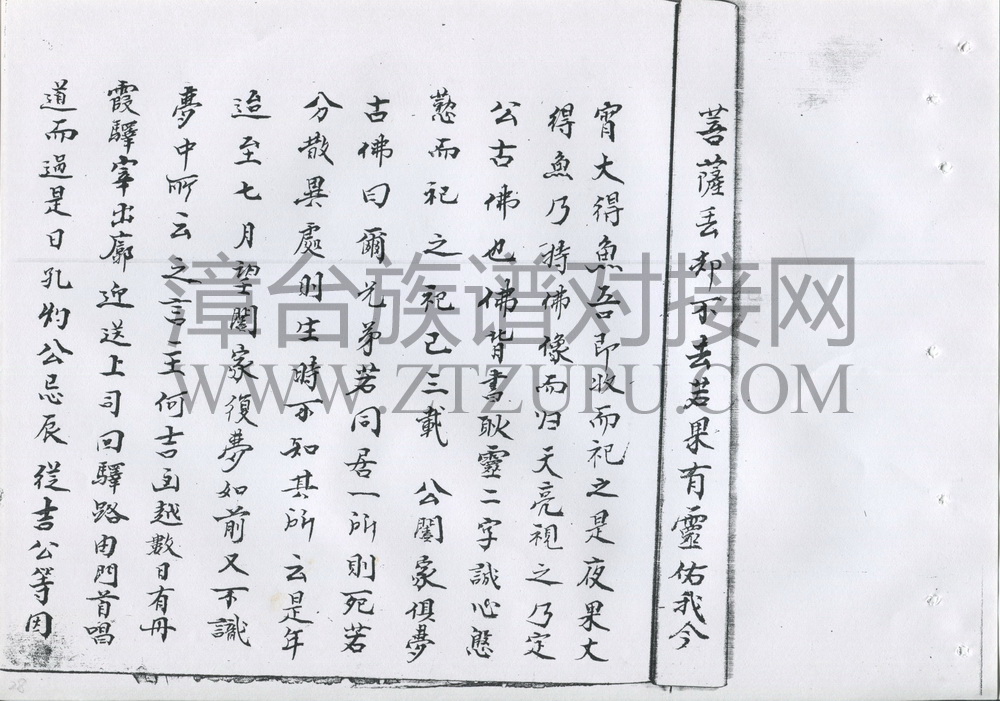 菩薩丢却不去若果有靈佑我今
宵大得魚吾即收而祀之是夜果大
得魚乃持佛像而归天亮視之乃定
公古佛也佛背書耿靈二字誠心慇
懃而祀之祀已三載 公闔家俱夢
古佛曰爾兄弟若同居一所則死若
分散異處則生時不知其所云是年
迨至七月望闔家復夢如前又不識
夢中所云之言主何吉凶越數日有丹
霞驛宰出廓迎送上司回驛路由門首唱
道而過是日孔灼公忌辰從吉公等因
漳台族谱对接网
WWW.ZTZUPU.COM
28